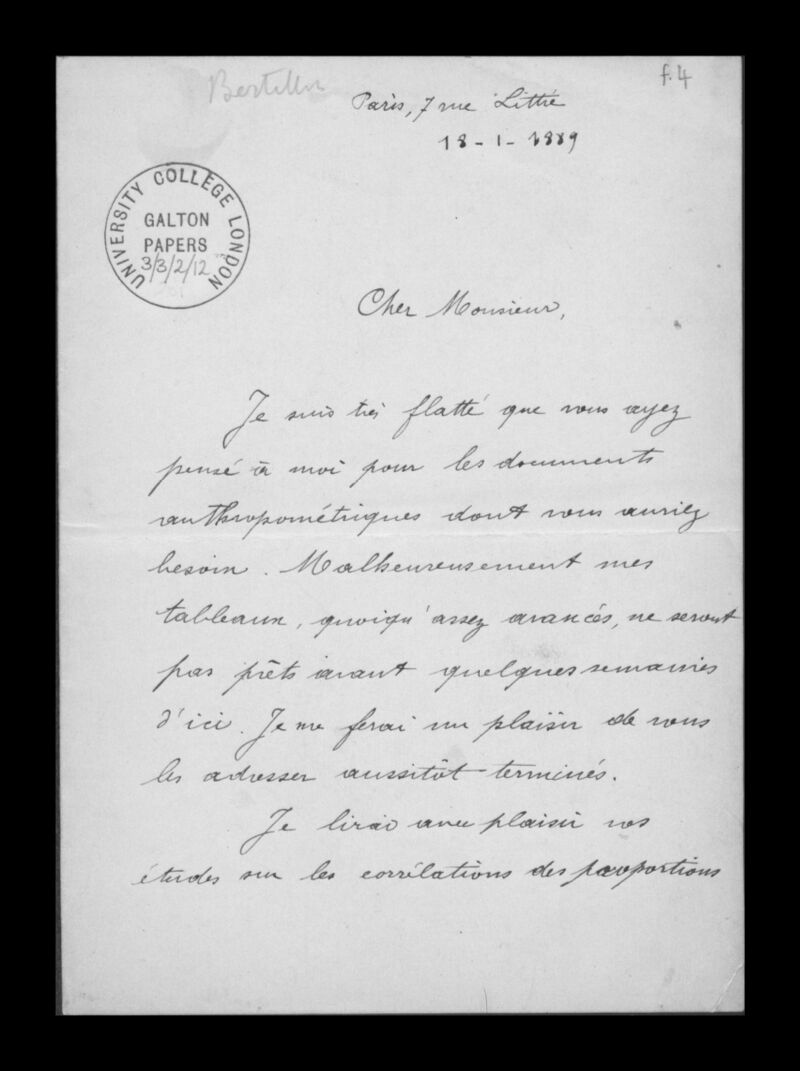 Bertillon
f. 4
Paris, 7 rue Littré
18 - 1 - 1889
UNIVERSITY COLLEGE LONDON
GALTON
PAPERS
3/3/2/12
Cher Monsieur,
Je suis très flatté que vous ayez
pensé à moi pour les documents
anthropométriques dont vous auriez
besoin. Malheureusement mes
tableaux, quoiqu'assez avancés, ne seront
pas prêts avant quelques semaines
d'ici. Je me ferai un plaisir de vous
les adresser aussitôt terminés.
Je lirai avec plaisir vos
études sur les corrélations des proportions